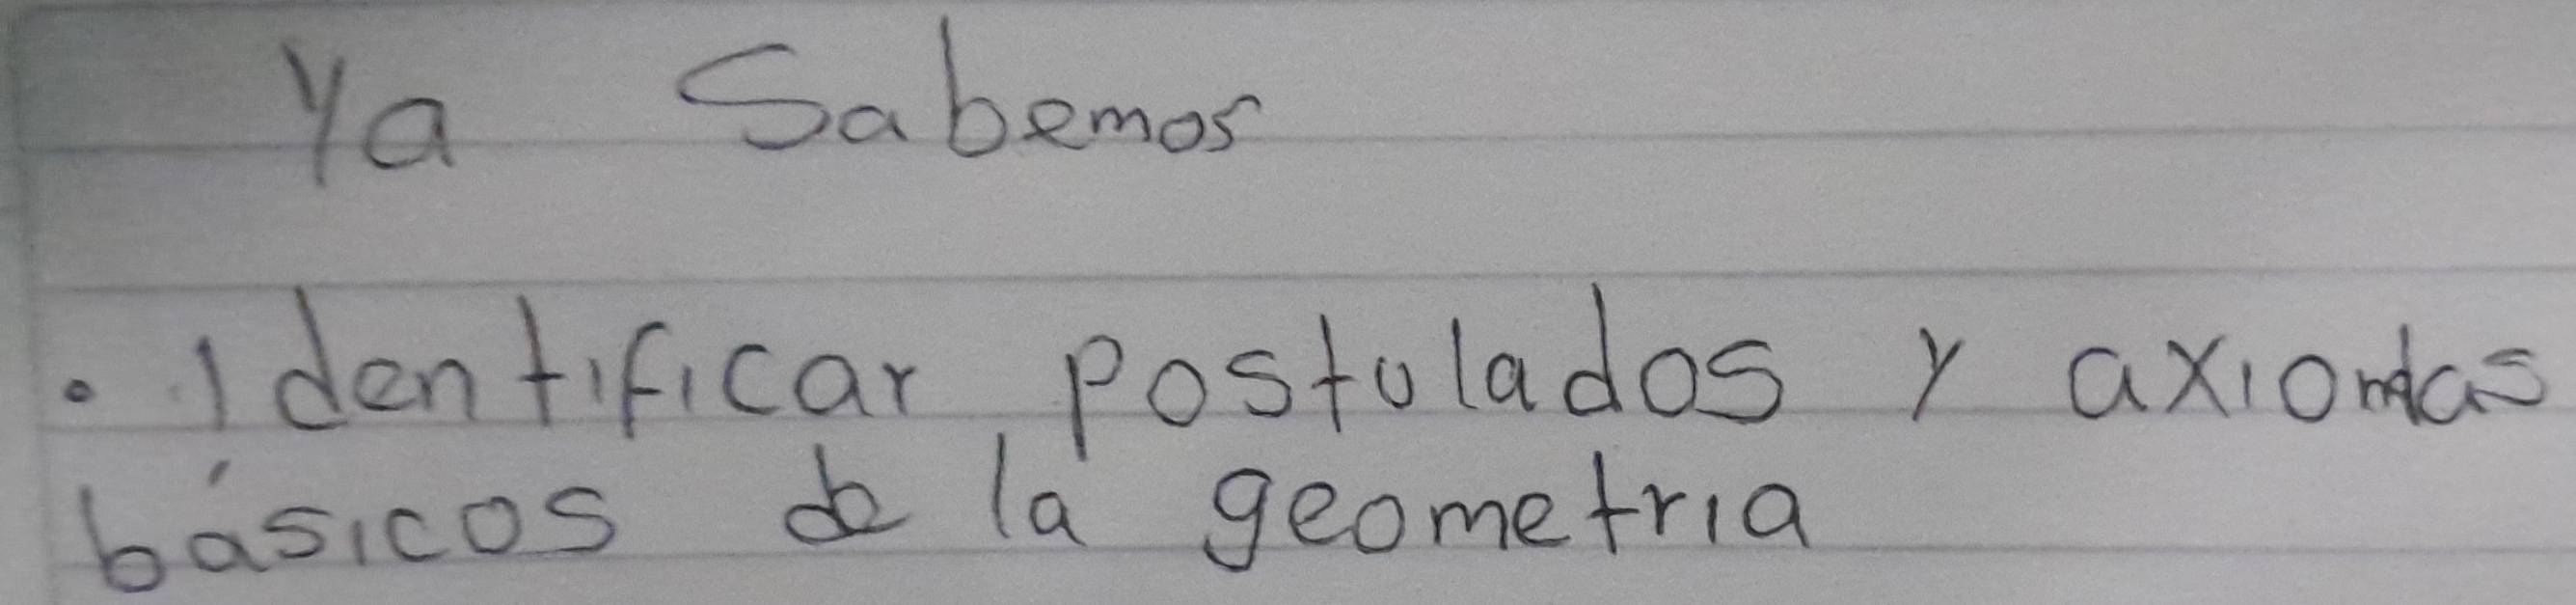 Ya Sabemos
• Identificar postulados y axiomas
básicos de la geometria